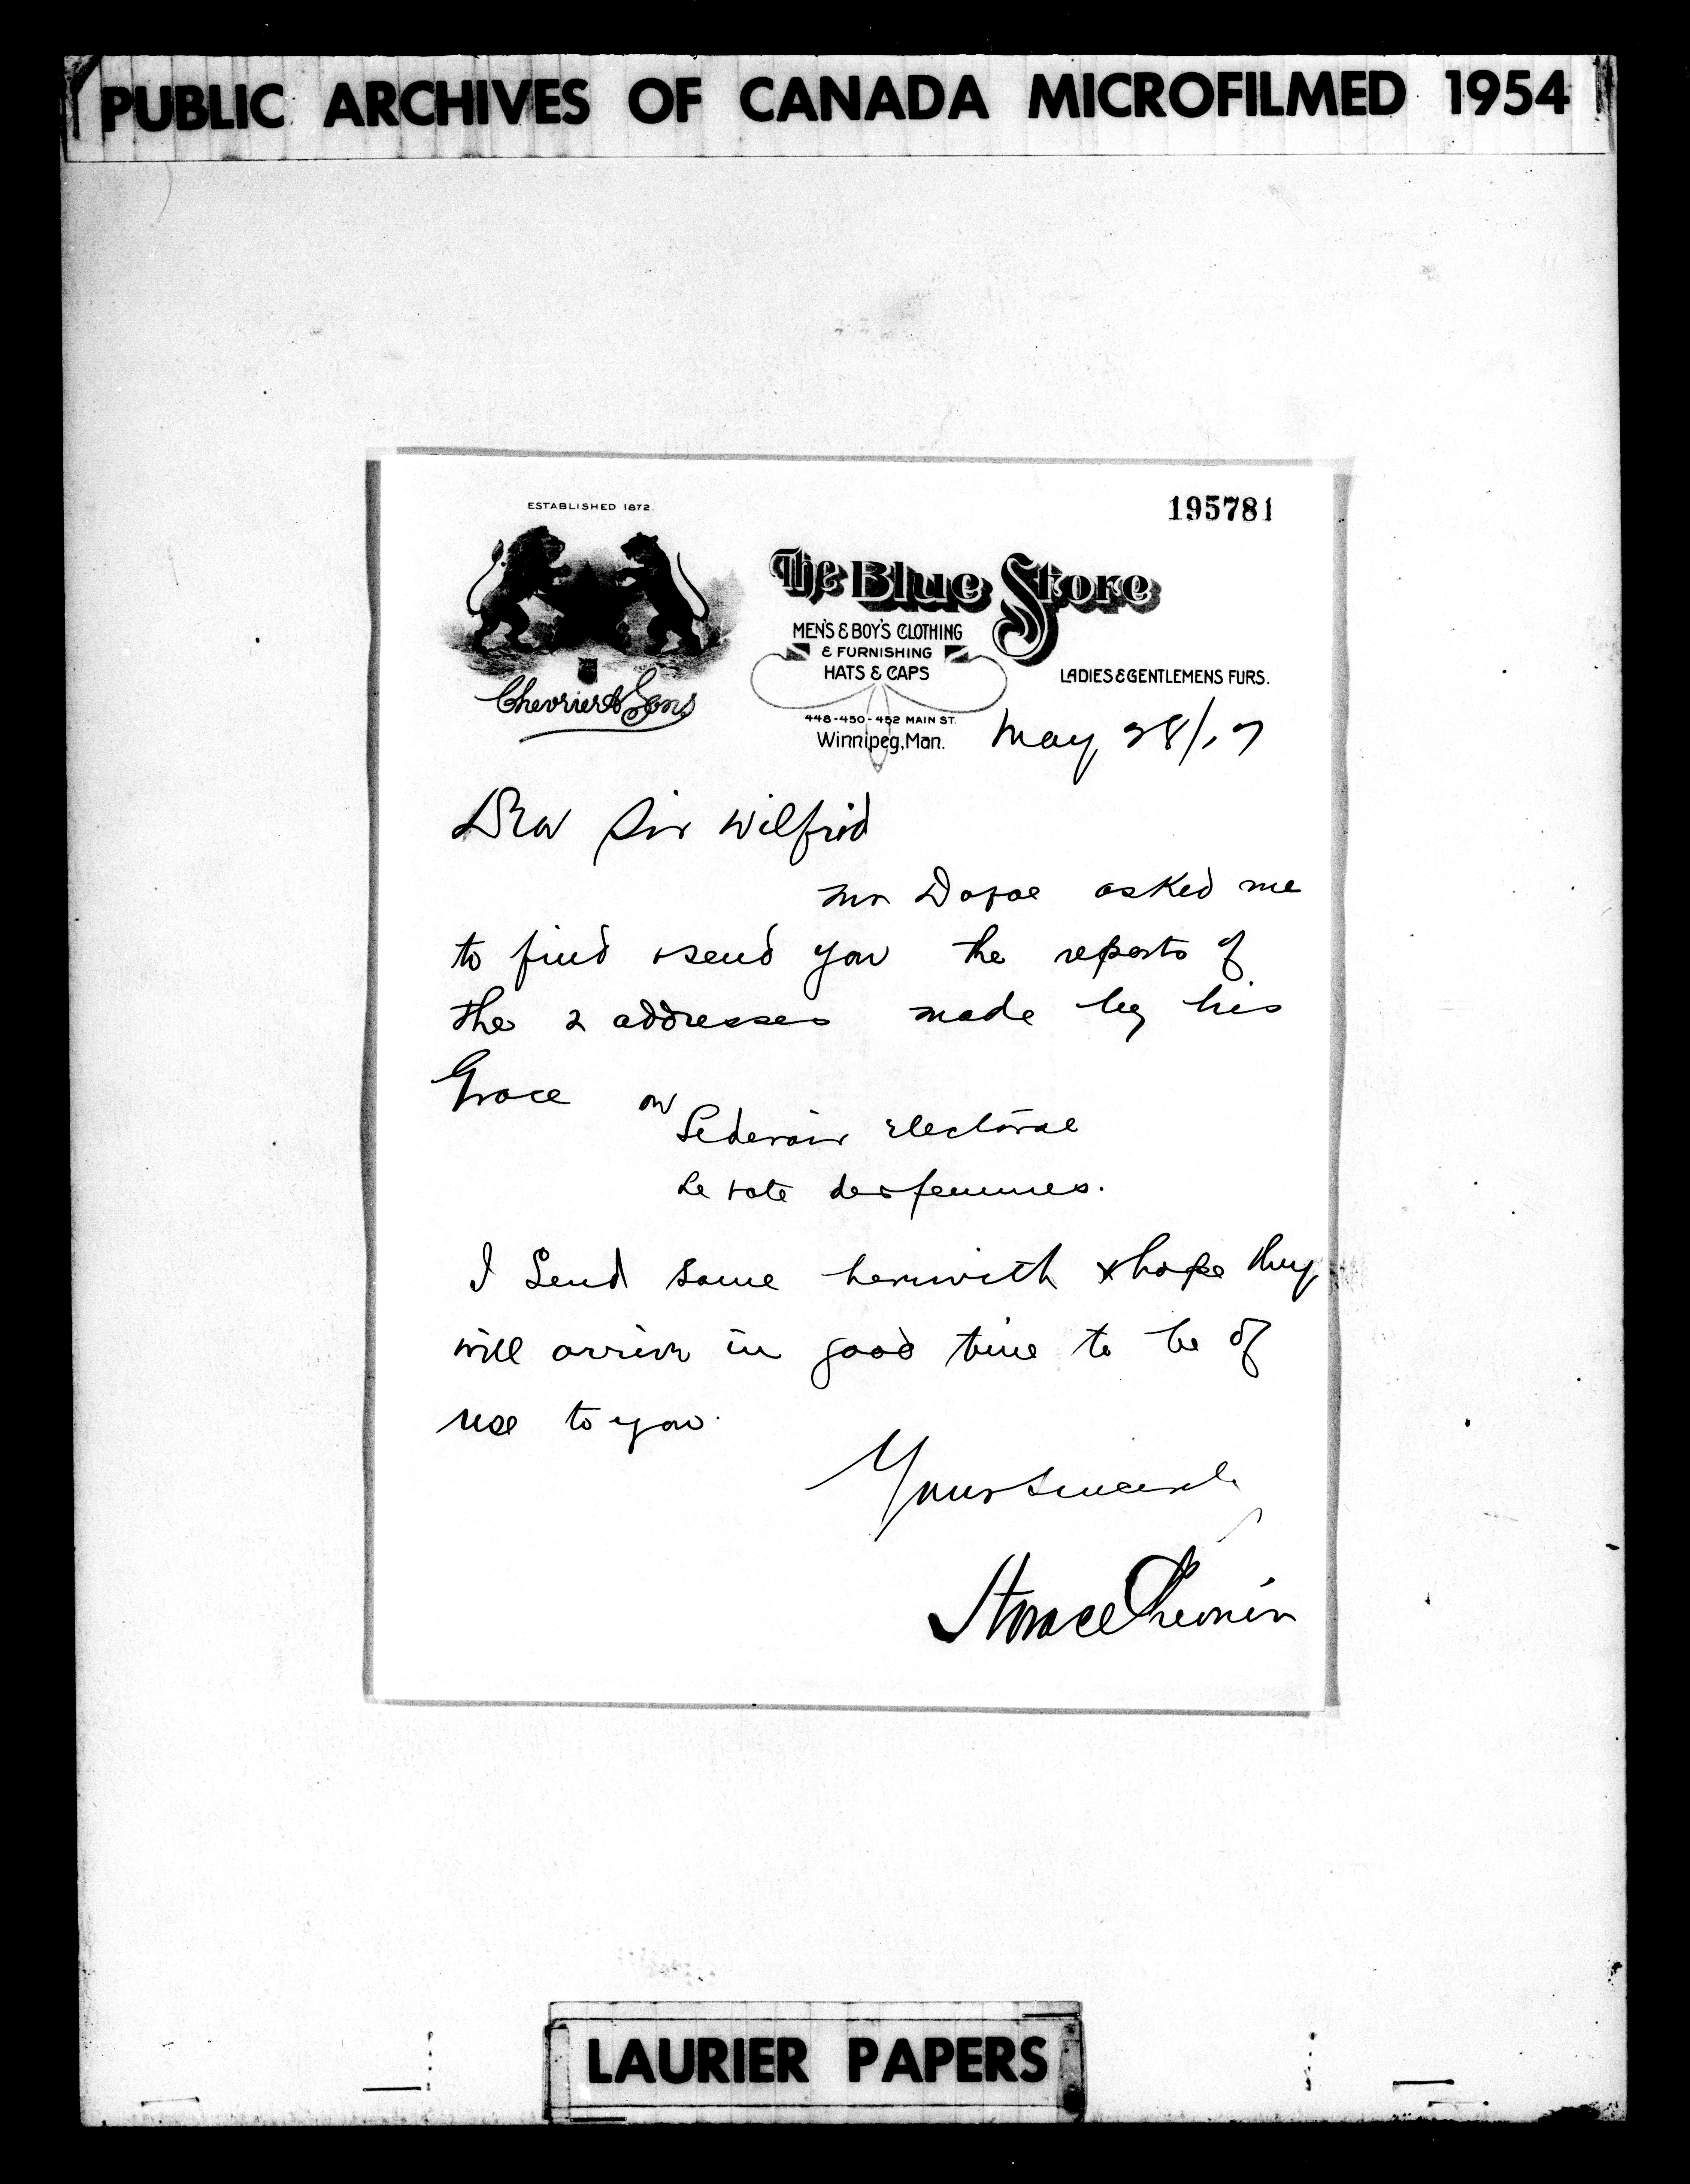 PUBLIC ARCHIVES OF CANADA MICROFILMED 1954
195781
ESTABLISHED 1872.
The Blue Store
MEN'S & BOY'S CLOTHING
& FURNISHING
HATS & CAPS
LADIES & GENTLEMENS FURS.
Chevrier & Sons
448-450-452 MAIN ST.
Winnipeg, Man.
May 28/17
Dear Sir Wilfrid
Mr Dafoe asked me
to find & send you the reports of
the 2 addresses made by his
Grace on
Le devoir electoral
Le vote des femmes.
I send same herewith & hope they
will arrive in good time to be of
use to you.
Yours sincerely
Horace Chevrier
LAURIER PAPERS